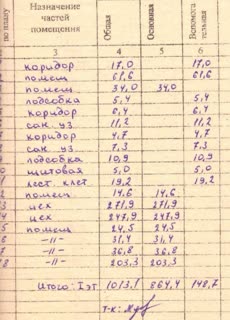 по плану
Назначение
частей
помещения
Общая
Основная
Вспомога
тельная
3. 4 5 6
коридор 17,0 17,0
помещ 61,6 61,6
помещ 34,0 34,0
подсобка 5,4 5,4
коридор 6,4 6,4
сан. уз. 11,2 11,2
коридор 4,7 4,7
сан. уз 7,3 7,3
подсобка 10,9 10,9
щитовая 5,0 5,0
лест. клет 19,2 19,2
2 помещ 14,6 14,6
3 цех 271,9 271,9
4 цех 247,9 247,9
5 помещ 24,5 24,5
6 -//- 31,4 31,4
7 -//- 36,8 36,8
8 -//- 203,3 203,3
Итого: I эт 1013,1 864,4 148,7
т-к: